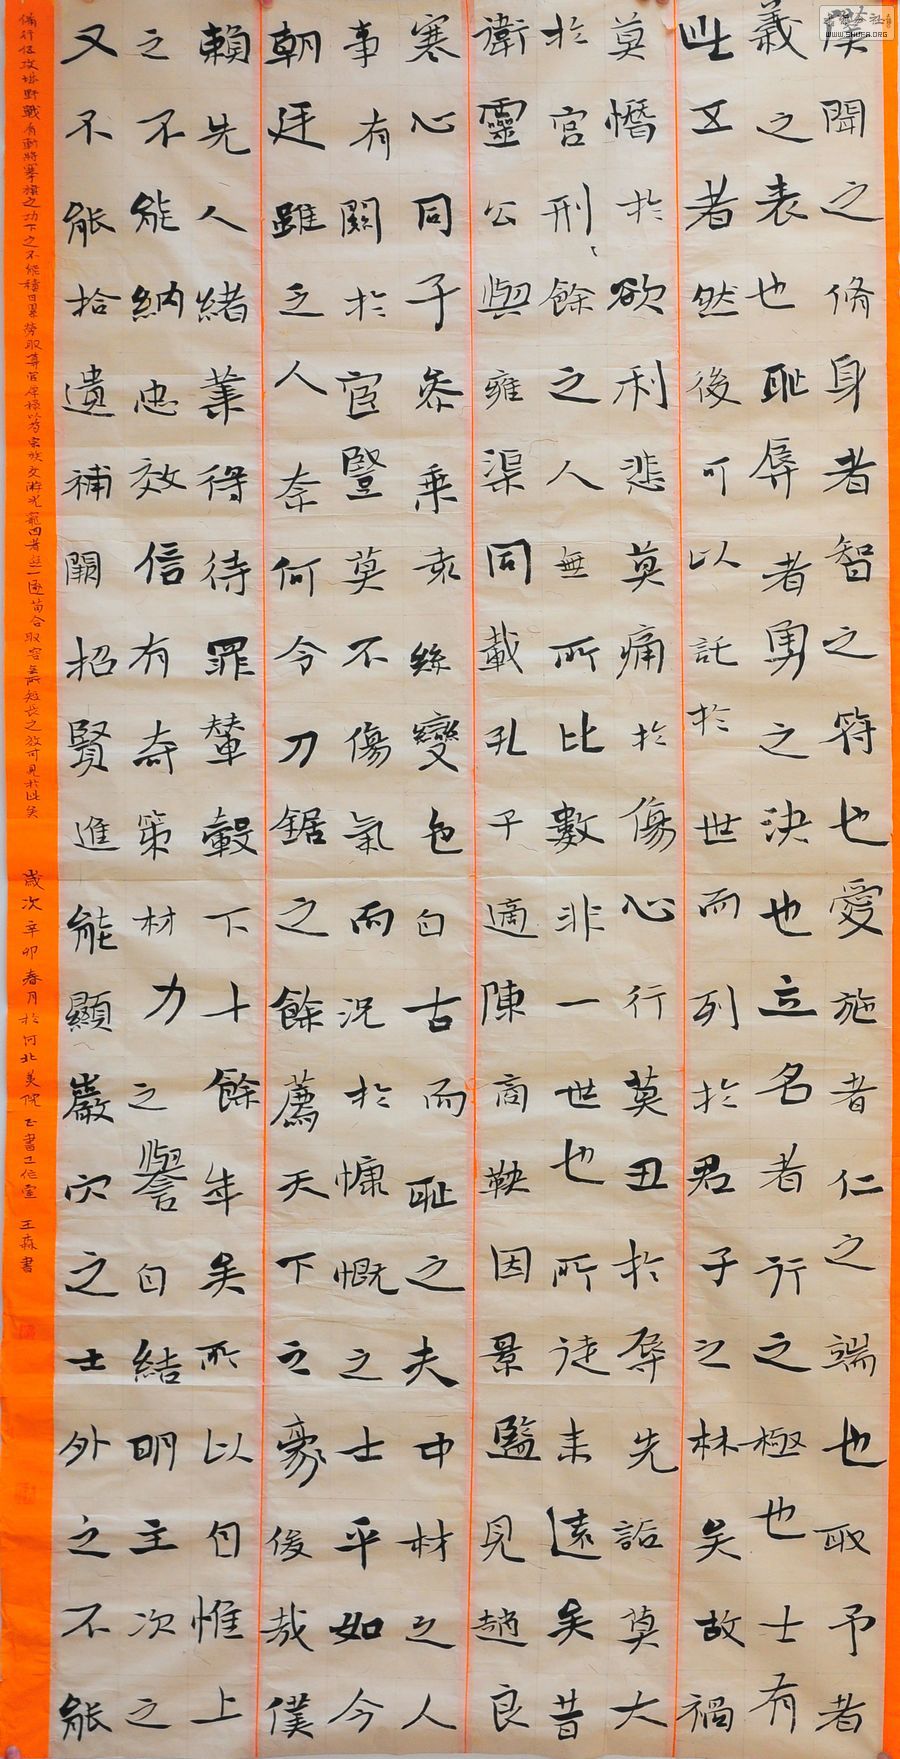 僕聞之脩身者智之符也愛施者仁之端也取予者
義之表也耻辱者勇之決也立名者行之極也士有
此五者然後可以託於世而列於君子之林矣故禍
莫憯於欲利悲莫痛於傷心行莫丑於辱先詬莫大
於宫刑餘之人無所比數非一世也所徒来遠矣昔
衛靈公與雍渠同載孔子適陳商鞅因景監見趙良
寒心同子叅乗袁絲變色自古而耻之夫中材之人
事有關於宦豎莫不傷氣而況於慷慨之士乎如今
朝廷雖乏人奈何令刀鋸之餘薦天下之豪俊哉僕
賴先人緒業得待罪輦轂下十餘年矣所以自惟上
之不能納忠效信有奇策材力之譽自結明主次之
又不能拾遺補闕招賢進能顯巖穴之士外之不能
備行伍攻城野戰有斬將搴旗之功下之不能積日累勞取尊官厚禄以為宗族交遊光寵四者無一遂苟合取容無所短長之效可見於此矣 歲次辛卯春月於河北美院 書工作室 王森書
WWW.SHUFA.ORG